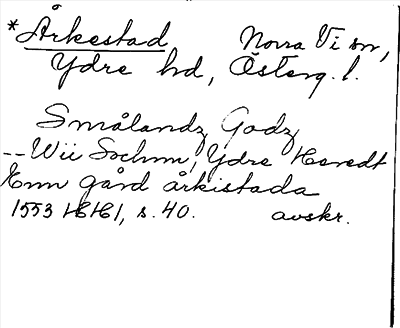 *Årkestad Norra Vi sn,
Ydre hd, Österg. l.
Smålandz Godz
-- Wii Sochnn, Ydre Heredt
Enn gård årkistada
1553 HH1, s. 40. avskr.